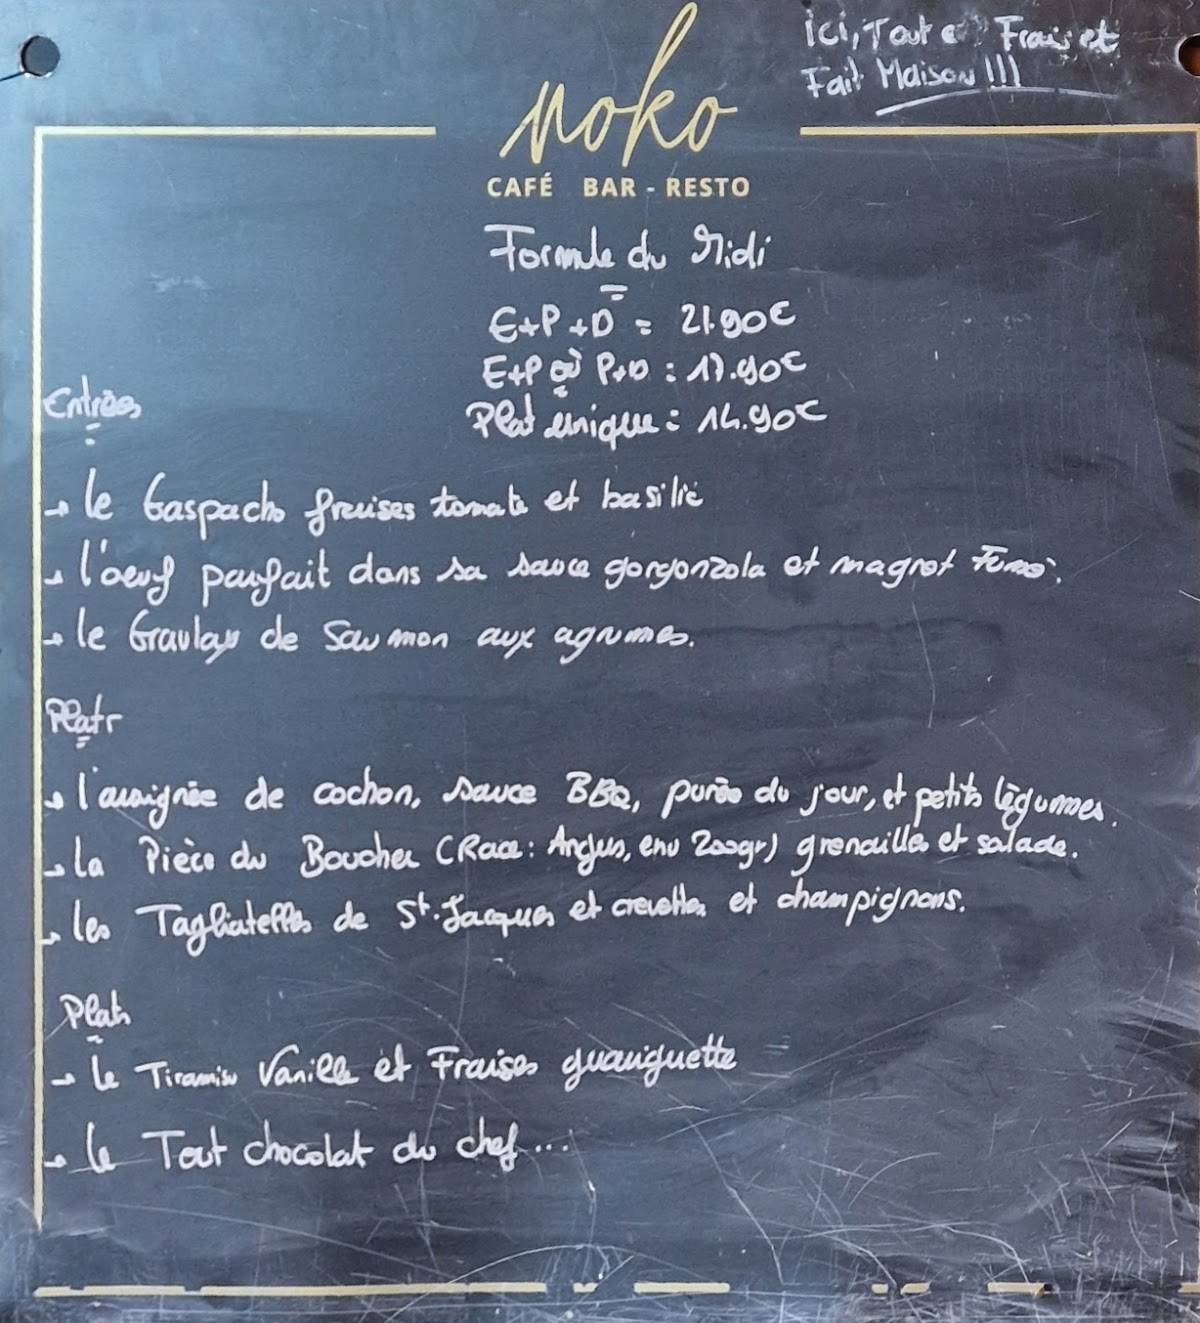 ici, Tout Frais et
Fait Maison !!!
noko
CAFÉ BAR - RESTO
Formule du Midi
E+P+D = 21.90€
E+P où P+D : 17.90€
Plat unique : 14.90€
Entrées
→ le Gaspacho fraises tomate et basilic
→ l'oeuf parfait dans sa sauce gorgonzola et magret Fumé.
→ le Gravlax de Saumon aux agrumes.
Plats
→ l'araignée de cochon, sauce BBQ, purée du jour, et petits légumes.
→ la Pièce du Boucher (Race: Angus, env 200gr) grenailles et salade.
→ les Tagliatelles de St. Jacques et crevettes et champignons.
Plats
→ le Tiramisu Vanille et Fraises guariguette
→ le Tout chocolat du chef...